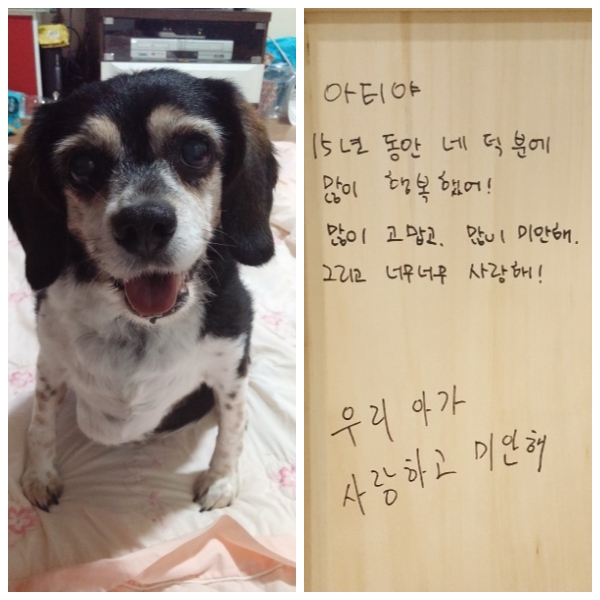 아티야
15년 동안 네 덕분에
많이 행복했어!
많이 고맙고, 많이 미안해.
그리고 너무너무 사랑해!
우리 아가
사랑하고 미안해